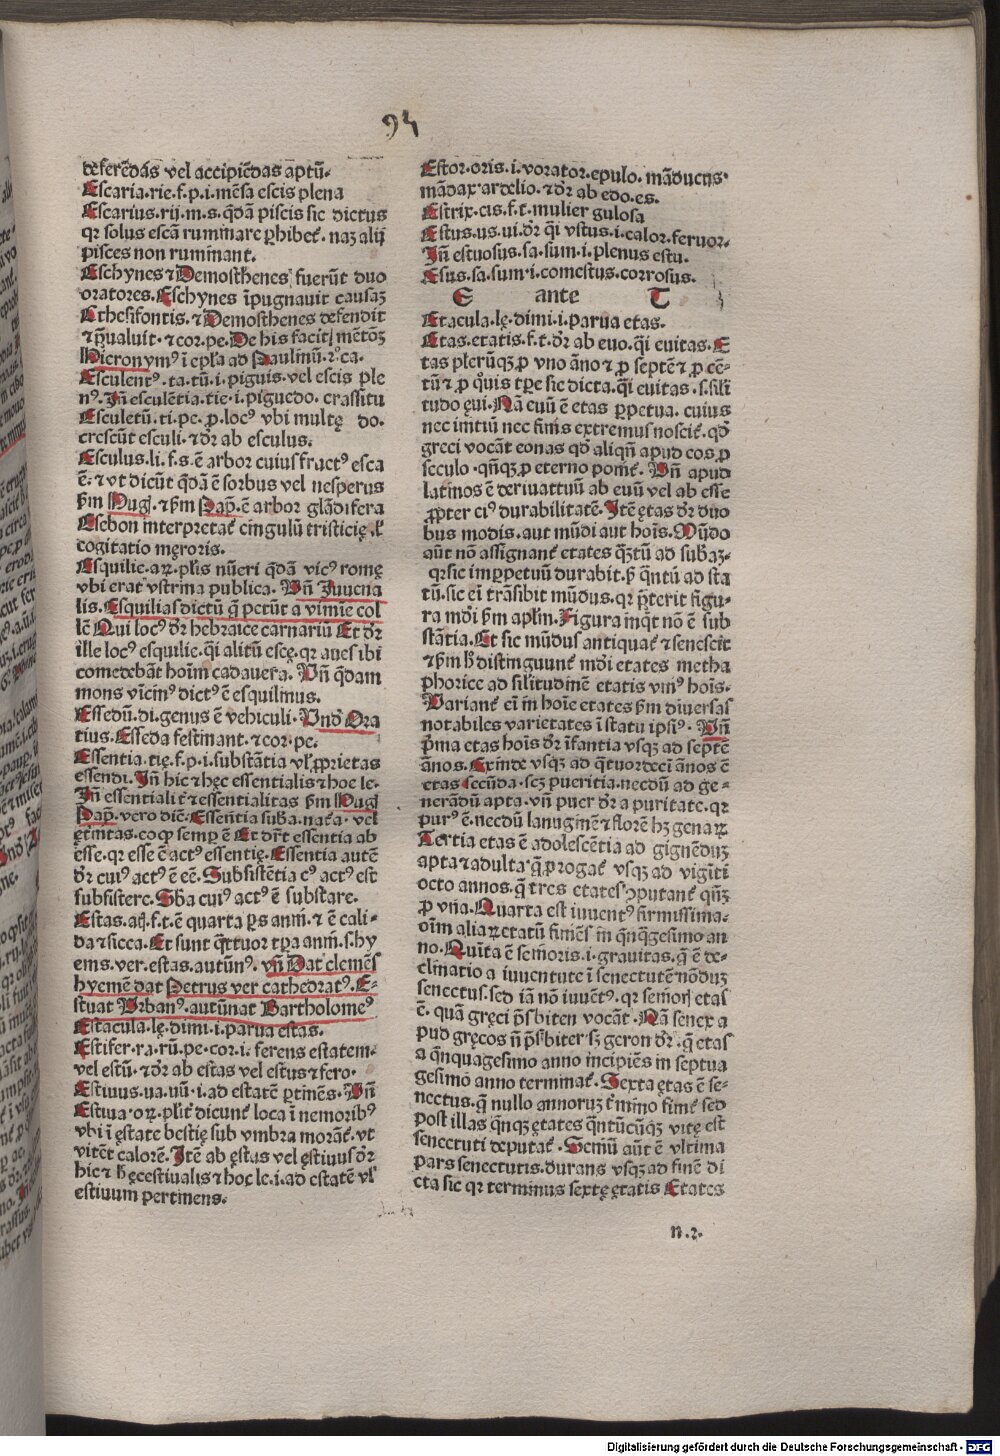 94
deferēdās vel accipiēdas aptū.
Escaria.rie.f.p.i.mēsa escis plena
Escarius.rij.m.s.q̄dā piscis sic dictus
qꝛ solus escā ruminare ꝑhibeť. naꝫ alij
pisces non ruminant.
Eschynes ⁊ Demosthenes fuerūt duo
oratores. Eschynes īpugnauit causaꝫ
Ethesifontis. ⁊ Demosthenes defendit
⁊ p̄ualuit. ⁊ cor.pe. De his facit mētōꝫ
Hieronymꝰ ī epl̄a ad Paulinū. ca.
Esculentꝰ.ta.tū.i.piguis.vel escis ple
nꝰ. Jn̄ esculētia.tie.i.piguedo.crassitu
Esculetū.ti.pe.ꝓ.locꝰ vbi multę do.
crescūt esculi. ⁊ dr̄ ab esculus.
Esculus.li.f.s.ē arbor cuius fructꝰ esca
ē. ⁊ vt dicūt q̄dā ē sorbus vel nesperus
ẜm Hug. ⁊ ẜm Pap. ē arbor glādifera
Esebon interpretať cingulū tristicię.ł
cogitatio męroris.
Esquilie.aꝝ.pl̄is nūeri q̄dā vicꝰ romę
vbi erat vstrina publica. Vn̄ Juuena
lis. Esquiliasdictū q̄ petūt a vimīe col
lē Qui locꝰ dr̄ hebraice carnariū Et dr̄
ille locꝰ esquilie.qi alitū escę.qꝛ aues ibi
comedebāt hoīm cadauera. Vn̄ q̄dam
mons vicinꝰ dictꝰ ē esquilinus.
Essedū.di.genus ē vehiculi. Vnd̄ Ora
tius. Esseda festinant. ⁊ cor.pe.
Essentia.tię.f.p.i.substātia vł ꝓprietas
essendi. Jn̄ hic ⁊ hęc essentialis ⁊ hoc le.
Jn̄ essentialit̄ ⁊ essentialitas ẜm Hug
Pap. vero diē. Essen̄tia suba.nať a. vel
ęternitas.eo ꝙ semp̄ ē Et dr̄t essentia ab
esse.qꝛ esse ē actꝰ essentię. Essentia autē
dr̄ cuiꝰ actꝰ ē eē. Subsistētia cꝰ actꝰ est
subsistere. Sb̄a cuiꝰ actꝰ ē substare.
Estas.atꝭ.f.t.ē quarta ꝑs anni. ⁊ ē cali-
da ⁊ sicca. Et sunt q̄ttuor tꝑa anni.s.hy
ems.ver.estas.autūnꝰ. vn̄ Dat clemēs
hyemē dat Petrus ver cathedratꝰ. E-
stuat Vrbanꝰ.autūnat Bartholomeꝰ
Estacula.lę.dimi.i.parua estas.
Estifer.ra.rū.pe.cor.i. ferens estatem.
vel estū. ⁊ dr̄ ab estas vel estus ⁊ fero.
Estiuus.ua.uū.i.ad estatē ꝑtinēs. Vn̄
Estiua.oꝝ.plīt dicunt loca ī nemoribꝰ
vbi ī ęstate bestię sub vmbra morāť. vt
vitēt calorē. Jtē ab ęstas vel ęstiuus dr̄
hic ⁊ hęcestiualis ⁊ hoc le.i.ad estatē vł
estiuum pertinens.
Estor.oris.i.vorator.epulo.māducus.
mādax.ardelio. ⁊ dr̄ ab edo.es.
Estrix.cis.f.t.mulier gulosa
Estus.us.ui.dr̄ qi vstus.i.calor.feruor.
Jn̄ estuosus.sa.sum.i.plenus estu.
Esus.sa.sum.i.comestus.corrosus.
E ante T
Etacula.lę.dimi.i.parua etas.
Etas.etatis.f.t.dr̄ ab euo.qi euitas. E
tas plerūqꝫ ꝓ vno āno ⁊ ꝓ septē ⁊ ꝓ cē-
tū ⁊ ꝓ q̊uis tꝑe sic dicta.q̄i euitas.s.sili
tudo ęui. Nā euū ē etas ꝑpetua. cuius
nec initiū nec finis extremus nosciť. qd̄
greci vocāt eonas qd̄ aliqn̄ apud eos ꝓ
seculo.qn̄qꝫ ꝓ eterno poniť. Vn̄ apud
latinos ē deriuatiuū ab euū vel ab esse
ꝓpter eiꝰ durabilitatē. Jtē ętas dr̄ duo
bus modis. aut mūdi aut hoīs. Mūdo
aūt nō assignant etates q̄ꝫtū ad sub̄aꝫ.
qꝛ sic imꝑpetuū durabit. ẜ q̄ntū ad sta
tū.sic eī trāsibit mūdus.qꝛ p̄terit figu-
ra mūdi ẜm apl̄m. Figura inq̄t nō ē sub
stātia. Et sic mūdus antiquať ⁊ senescit
⁊ ẜm h̄ distinguunť mūdi etates metha
phorice ad silitudinē etatis viniꝰ hoīs.
Varianť eī in hoīe etates ẜm diuersas
notabiles varietates ī statu ipsiꝰ. Vn̄
p̄ma etas hoīs dr̄ īfantia vsqꝫ ad septē
ānos. Exinde vsqꝫ ad q̄tuordecī ānos ē
etas secūda.scꝫ pueritia.necdū ad ge-
nerādū apta.vn̄ puer dr̄ a puritate.qꝛ
purꝰ ē.necdū lanuginē ⁊ florē hꝫ genaꝝ
Tertia etas ē adolescētia ad gignēdū
apta ⁊ adulta q̄ ꝓrogať vsqꝫ ad vigīti
octo annos.q̄ tres etates ɔputant qn̄ꝫ
ꝓ vna. Quarta est iuuentꝰ firmissima-
oīm aliaꝝ etatū finiēs in q̄nq̄gesimo an
no. Quīta ē semoris.i.grauitas.q̄ ē de-
clinatio a iuuentute ī senectutē nōduꝫ
senectus.sed iā nō iuuētꝰ.qꝛ senioris etas
ē. quā gręci p̄sbiten vocāt. Nā senex a
pud gręcos n̄ p̄sbiter sꝫ geron dr̄. q̄ etas
a q̄nquagesimo anno incipiēs in septua
gesimo anno terminať. Sexta ętas ē se-
nectus.q̄ nullo annoruꝫ tmino finiť sed
post illas q̄nqꝫ ętates q̄ntūcūqꝫ vitę est
senectuti deputať. Seniū aūt ē vltima
pars senectutis.durans vsqꝫ ad finē di
cta sic qꝛ terminus sextę ętatis Etates
n.2.
Digitalisierung gefördert durch die Deutsche Forschungsgemeinschaft - DFG